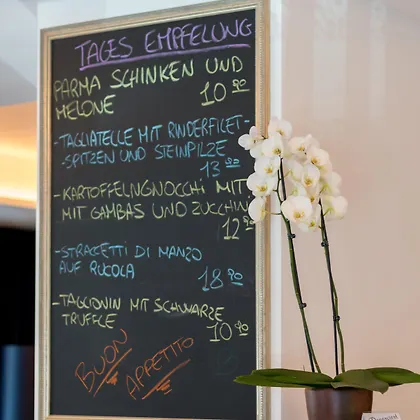 TAGES EMPFELUNG
PARMA SCHINKEN UND
MELONE
10 90
- TAGLIATELLE MIT RINDERFILET-
- SPITZEN UND STEINPILZE
13 90
- KARTOFFELNGNOCCHI MIT
MIT GAMBAS UND ZUCCHINI
12 90
- STRACCETTI DI MANZO
AUF RUCOLA
18 90
- TAGLIONIN MIT SCHWARZE
TRUFFLE
10 90
BUON
APPETITO